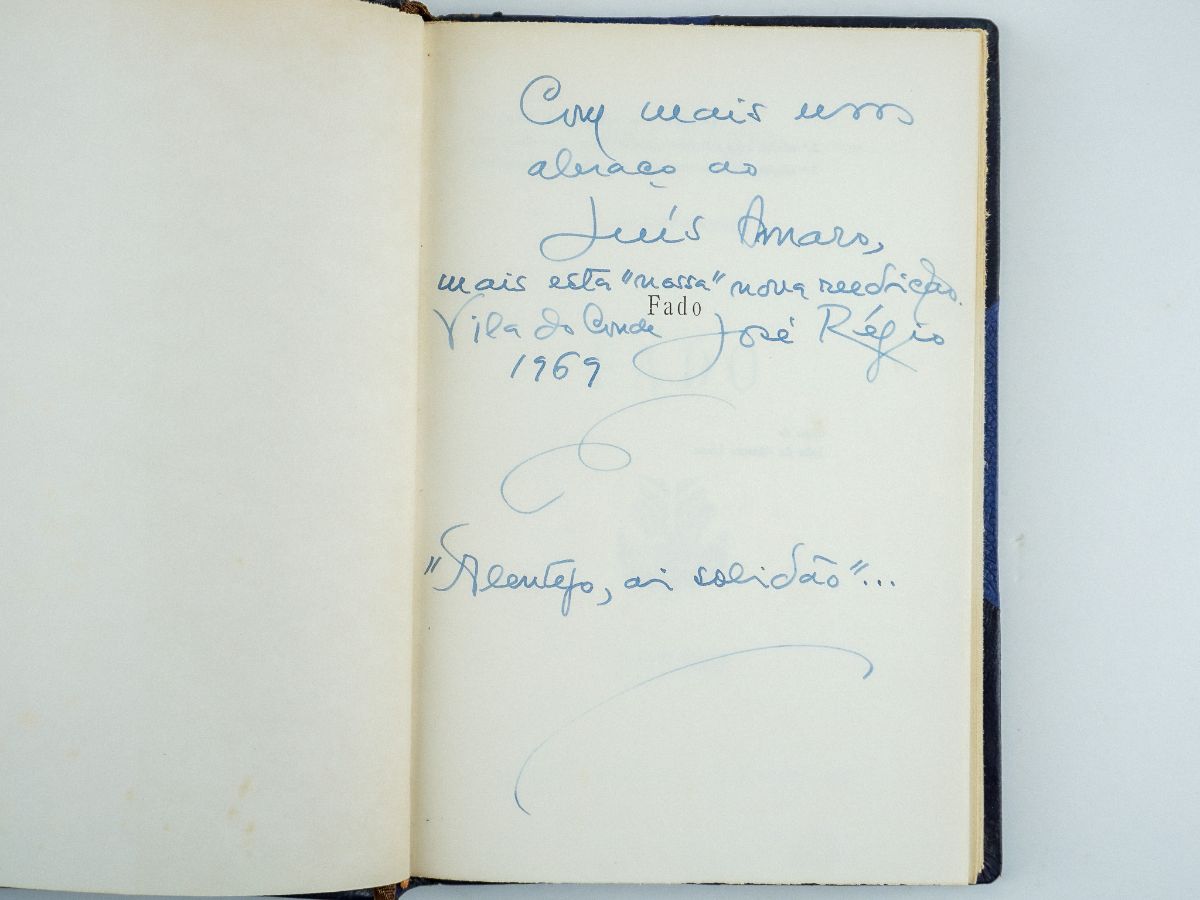 Com mais um
abraço ao
Luís Amaro,
mais esta "nossa" nova reedição.
Fado
Vila do Conde José Régio
1969
"Alentejo, ai solidão"...